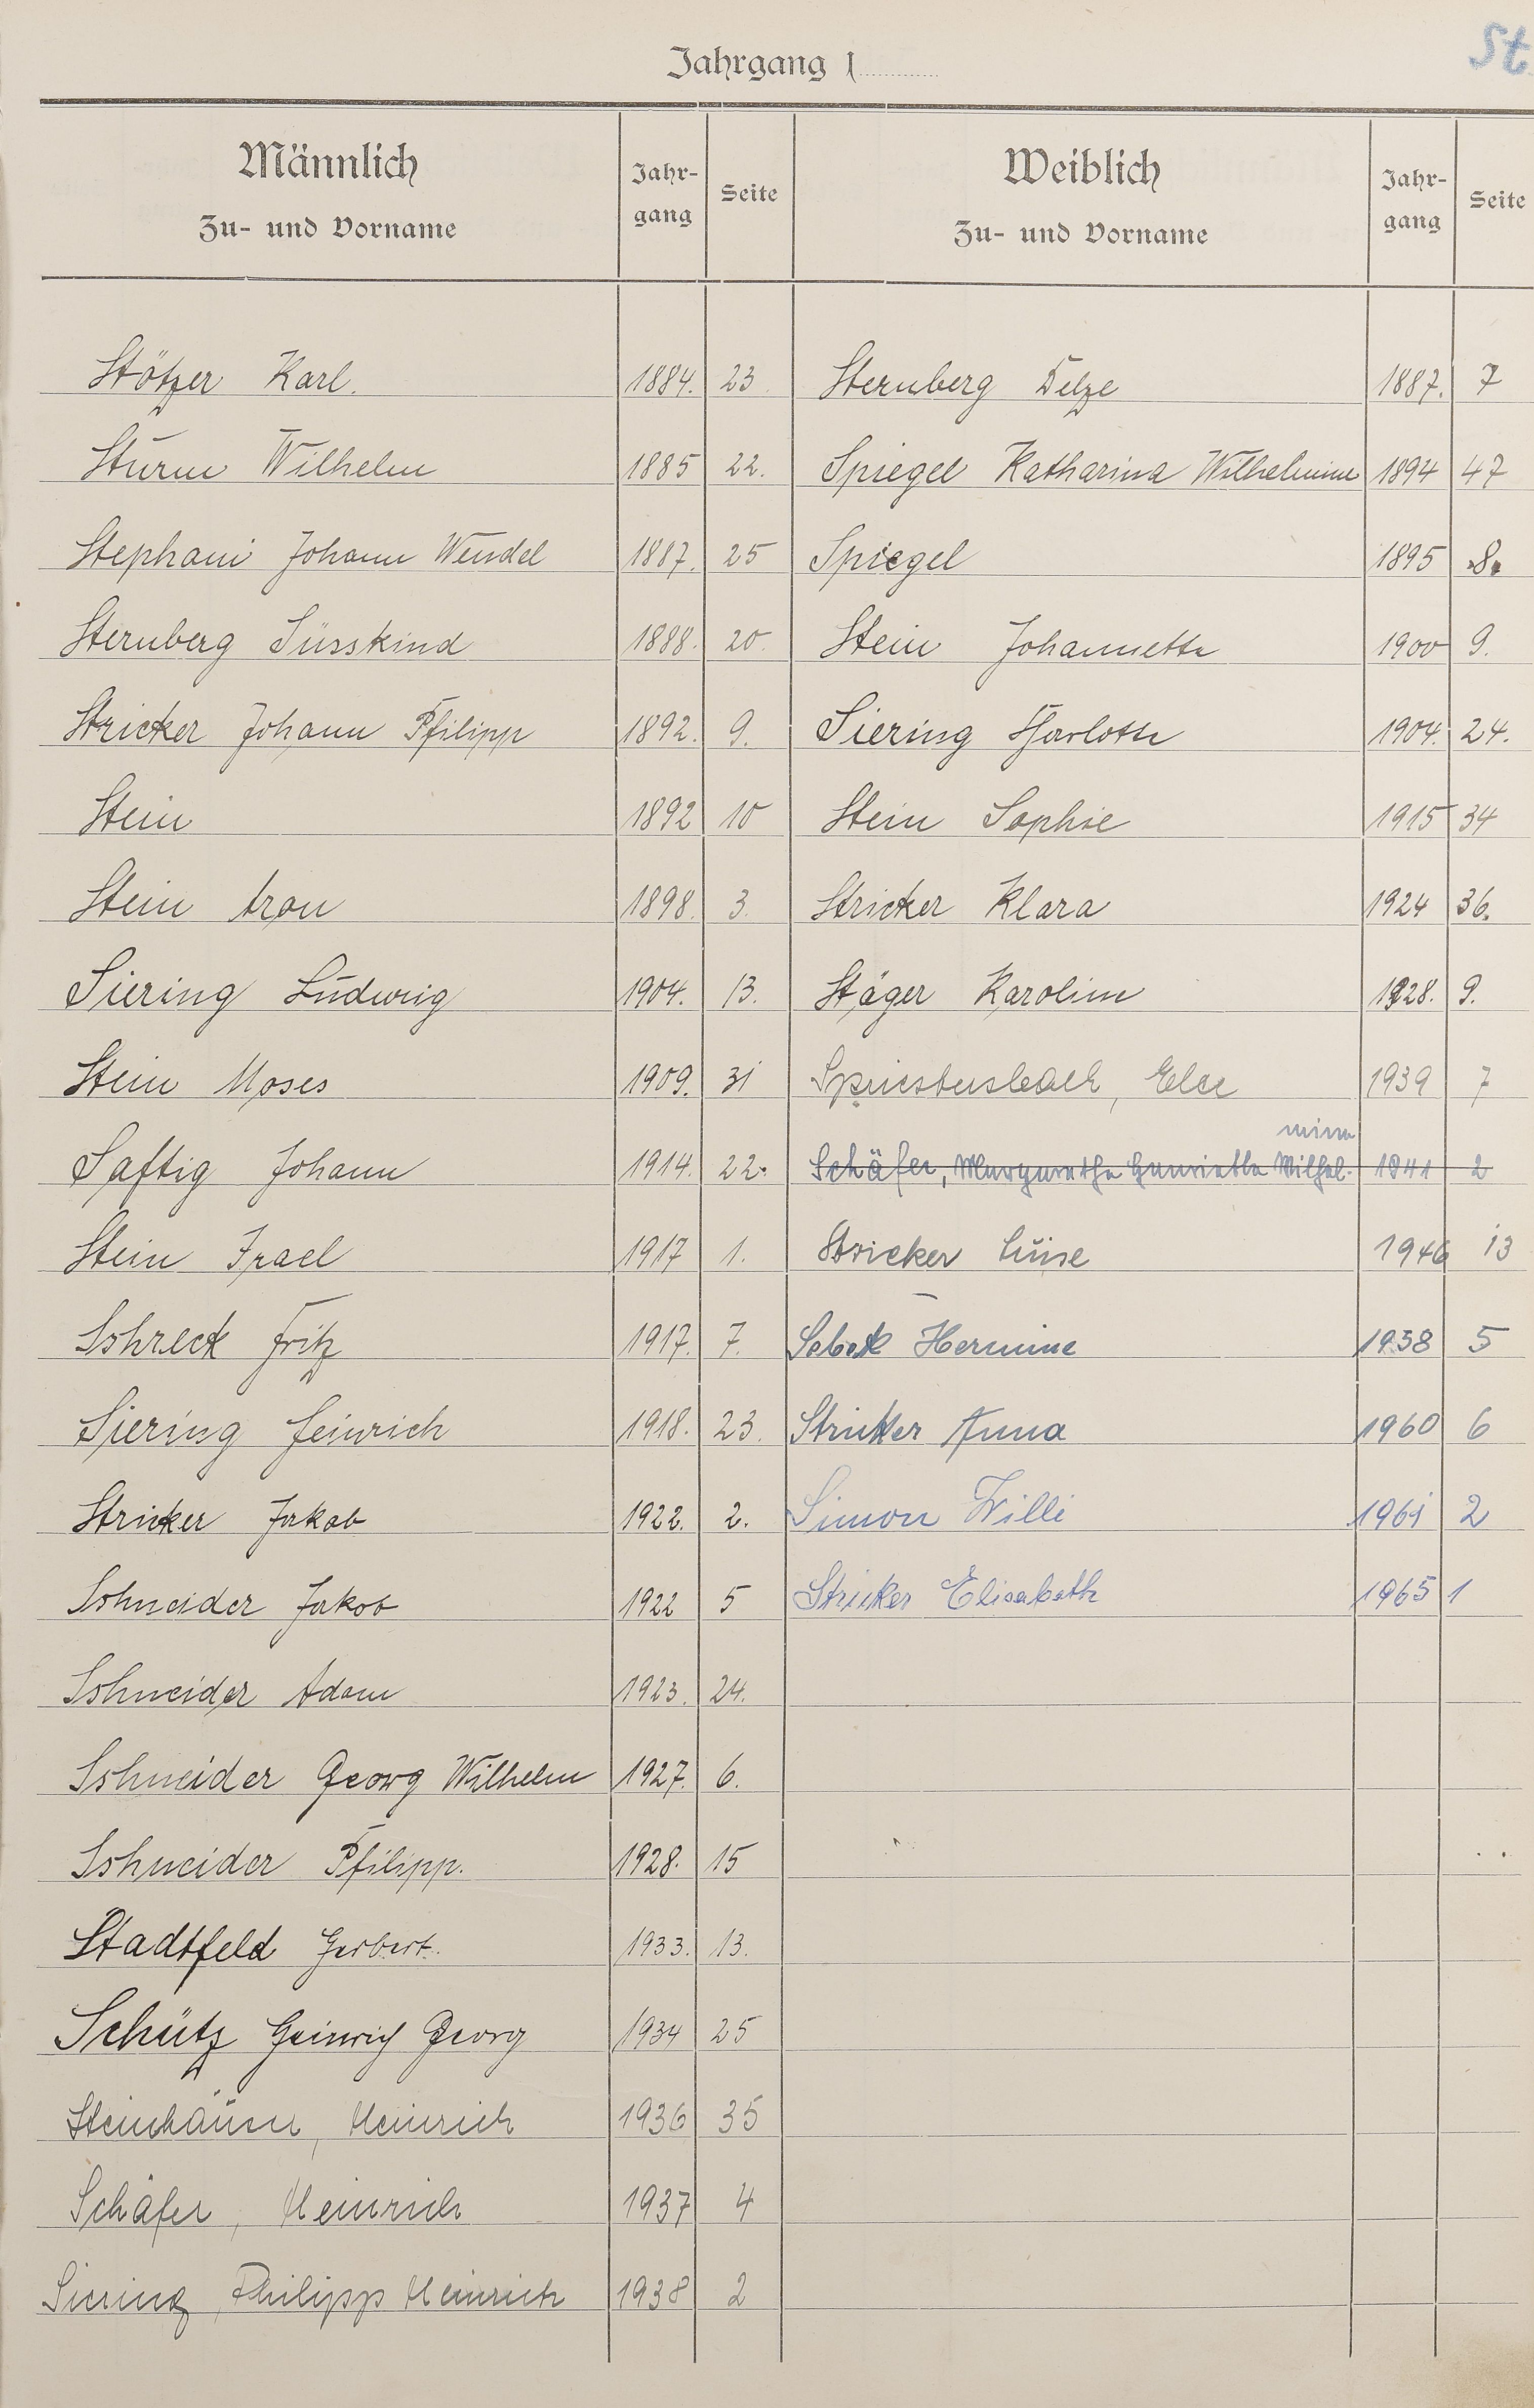 St
Jahrgang 1
Männlich
Zu- und Vorname
Jahr-
gang
Seite
Weiblich
Zu- und Vorname
Jahr-
gang
Seite
Stötzer Karl. 1884. 23. Sternberg Delze 1887. 7
Sturm Wilhelm 1885 22. Spiegel Katharina Wilhelmine 1894 47
Stephani Johann Wendel 1887. 25 Spiegel 1895 8.
Sternberg Süsskind 1888. 20. Stein Johannette 1900 9.
Stricker Johann Philipp 1892. 9. Siering Charlotte 1904. 24.
Stein 1892 10 Stein Sophie 1915 34
Stein Aron 1898. 3. Stricker Klara 1924 36.
Siering Ludwig 1904. 13. Stäger Karoline 1928. 9.
Stein Moses 1909. 31 Spriestersbach, Else 1939 7
mine
Saftig Johann 1914. 22. Schäfer, Margarethe Henriette Wilhel- 1941 2
Stein Israel 1917 1. Stricker Luise 1946 13
Schreck Fritz 1917. 7. Hermine 1958 5
Siering Heinrich 1918. 23. Stricker Anna 1960 6
Stricker Jakob 1922. 2. Simon Willi 1961 2
Schneider Jakob 1922 5 Stricker Elisabeth 1965 1
Schneider Adam 1923. 24.
Schneider Georg Wilhelm 1927. 6.
Schneider Philipp. 1928. 15
Stadtfeld Herbert. 1933. 13.
Schütz Heinrich Georg 1934 25
Steinhäuser, Heinrich 1936 35
Schäfer, Heinrich 1937 4
Siering, Philipp Heinrich 1938 2